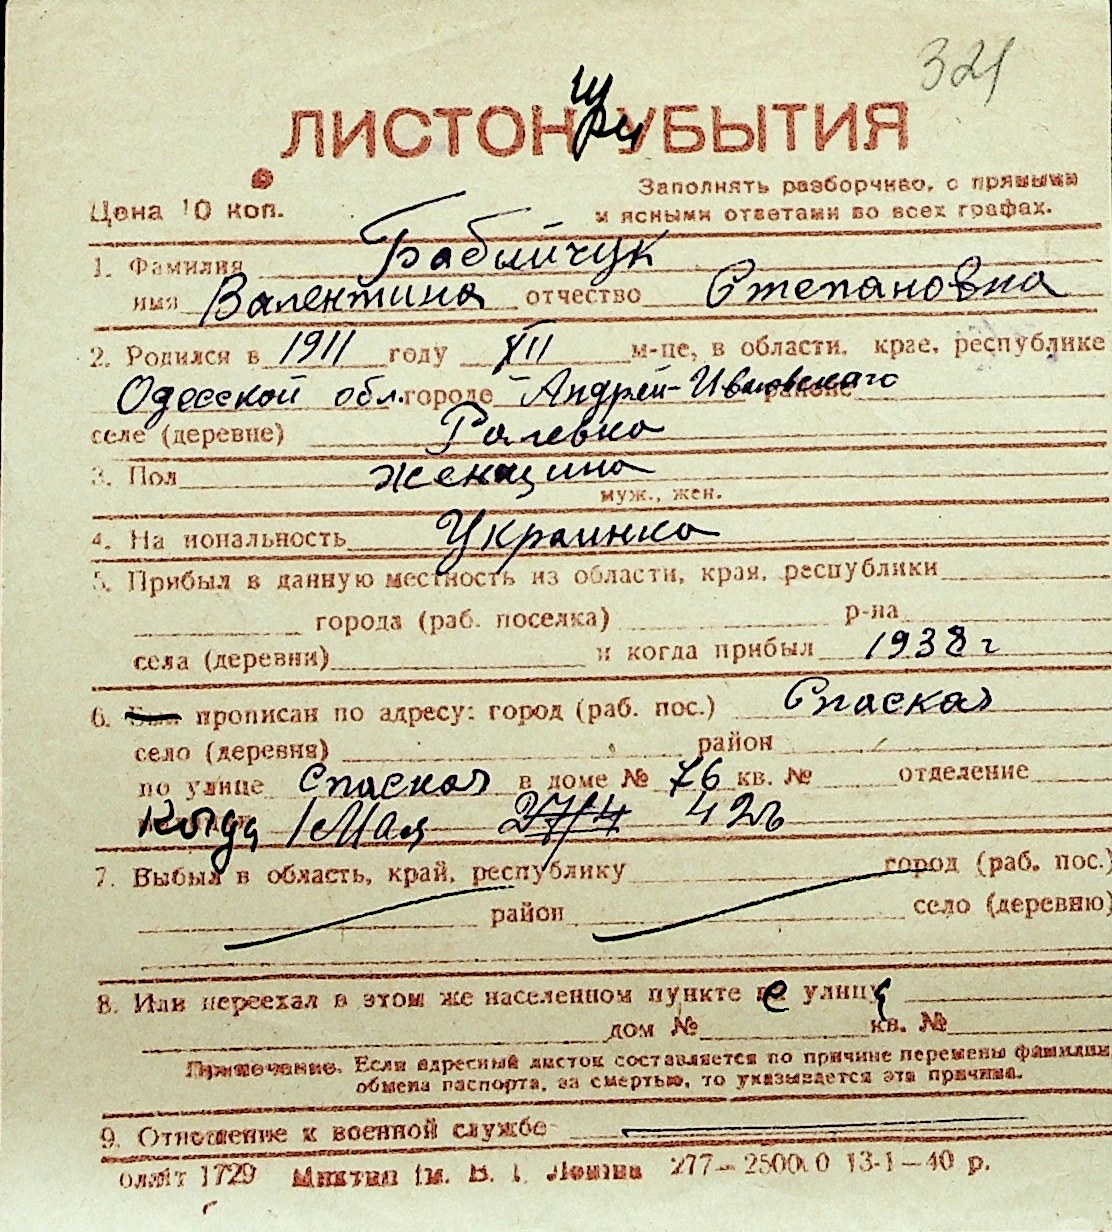 321
ЛИСТОК УБЫТИЯ
при
Цена 10 коп.
Заполнять разборчиво, с прямыми
и ясными ответами во всех графах.
1. Фамилия Бабийчук
имя Валентина отчество Степановна
2. Родился в 1911 году XII м-це, в области, крае, республике
Одесской обл. городе Андрей-Ивановского районе
селе (деревне)
3. Пол женщина
муж., жен.
4. Национальность Украинка
5. Прибыл в данную местность из области, края, республики
города (раб. поселка) р-на
села (деревни) и когда прибыл 1938 г
6. Был прописан по адресу: город (раб. пос.) Спаская
село (деревня) район
по улице Спаская в доме № 76 кв. № отделение
Когда 1 Мая 27/4 42 г
7. Выбыл в область, край, республику город (раб. пос.)
район село (деревню)
8. Или переехал в этом же населенном пункте с улицы
дом № кв. №
Примечание. Если адресный листок составляется по причине перемены фамилии,
обмена паспорта, за смертью, то указывается эта причина.
9. Отношение к военной службе
1729 Миктип Ім. В. І. Леніна 277—25000 13-1—40 р.